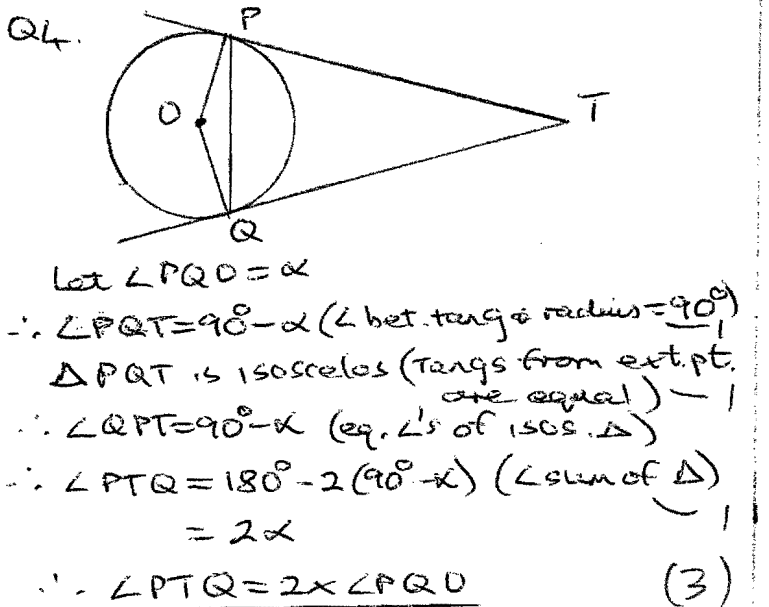 Q4.
P
O
T
Q
Let ∠PQO = α
∴ ∠PQT = 90° - α (∠ bet. tang & radius = 90°) - 1
Δ PQT is isosceles (Tangs from ext. pt.
are equal) - 1
∴ ∠QPT = 90° - α (eq. ∠'s of isos. Δ)
∴ ∠PTQ = 180° - 2(90° - α) (∠ sum of Δ) - 1
= 2α
∴ ∠PTQ = 2 x ∠PQO (3)